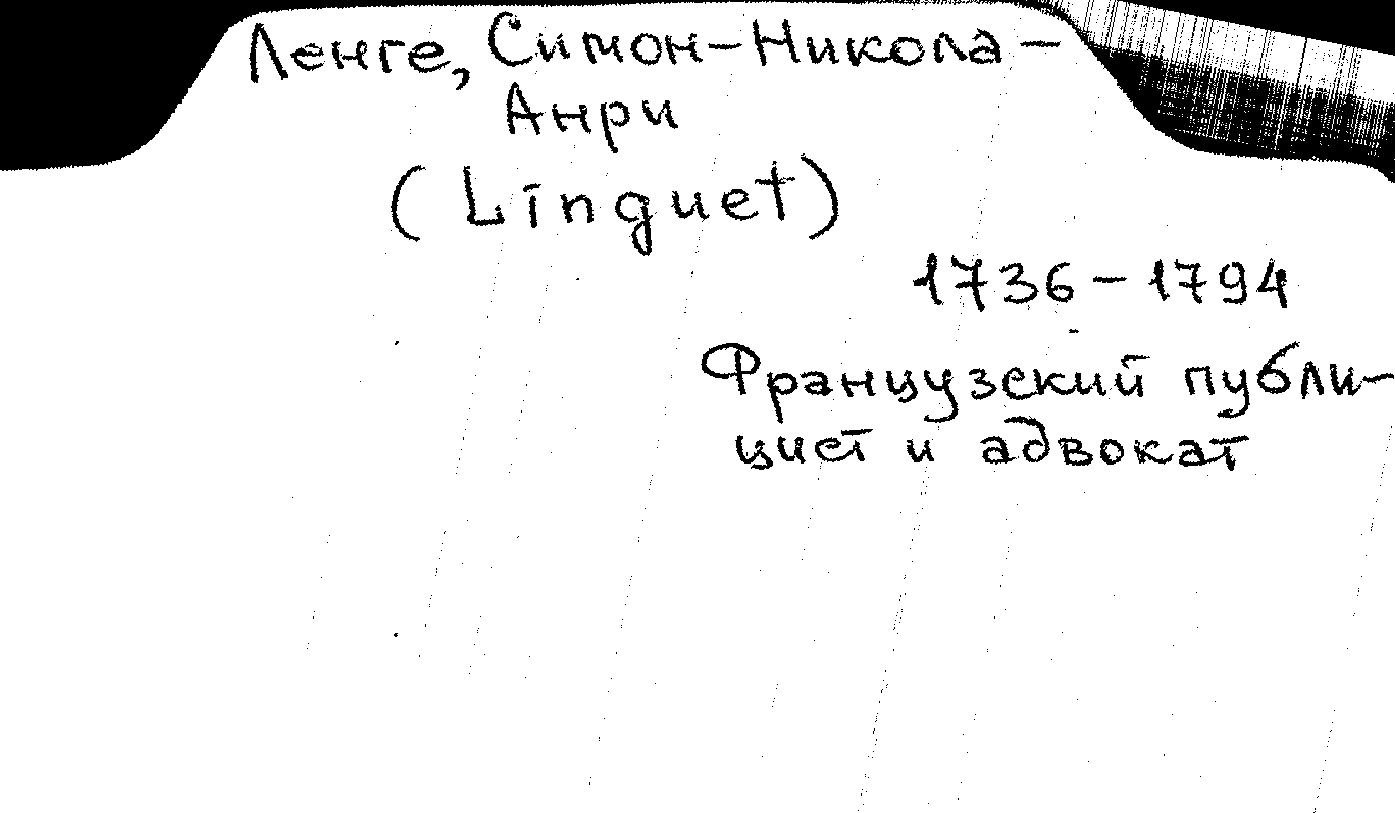 Ленге, Симон-Никола-
Анри
(Linguet)
1736-1794
Французский публи-
цист и адвокат